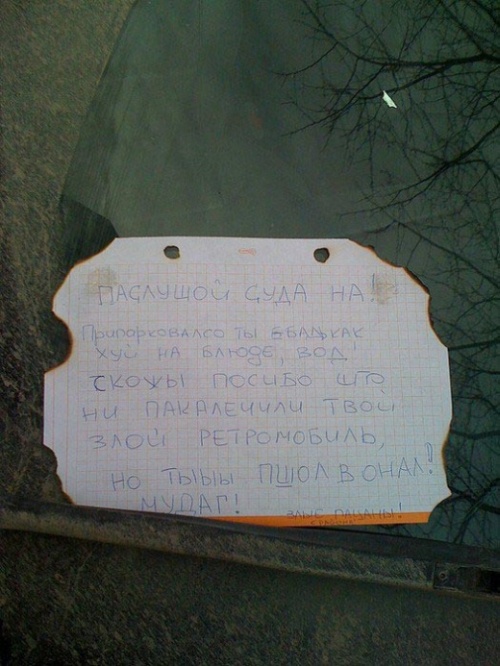 ПАСЛУШОЙ СУДА НА!
Припорковалсо ты
ХУЙ НА БЛЮДЕ, ВОД!
СКОЖЫ ПОСИБО ШТО
НИ ПАКАЛЕЧИЛИ ТВОЙ
ЗЛОЙ РЕТРОМОБИЛЬ,
НО ТЫЫЫ ПШОЛ В ОНАЛ!
МУДАГ!
ЗЛЫЕ ПАЦАНЫ!